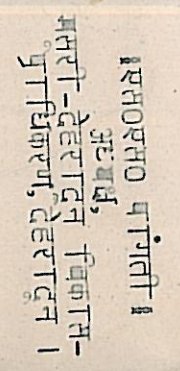 ॥एस०एस० पांगती॥
अध्यक्ष,
मसूरी-देहरादून विकास-
प्राधिकरण, देहरादून ।